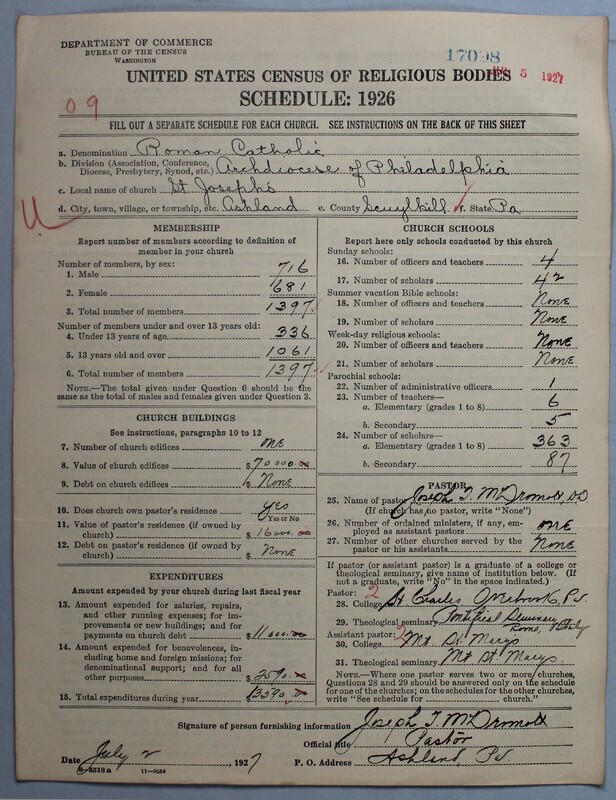 DEPARTMENT OF COMMERCE
BUREAU OF THE CENSUS
WASHINGTON
17098
5 1927
UNITED STATES CENSUS OF RELIGIOUS BODIES
SCHEDULE: 1926
09
FILL OUT A SEPARATE SCHEDULE FOR EACH CHURCH. SEE INSTRUCTIONS ON THE BACK OF THIS SHEET
a. Denomination Roman Catholic
b. Division (Association, Conference, Diocese, Presbytery, Synod, etc.) Archdiocese of Philadelphia
c. Local name of church St Josephs
d. City, town, village, or township, etc. Ashland e. County Scuylkill f. State Pa
MEMBERSHIP
Report number of members according to definition of
member in your church
Number of members, by sex:
1. Male 716
2. Female 681
3. Total number of members 1397
Number of members under and over 13 years old:
4. Under 13 years of age 336
5. 13 years old and over 1061
6. Total number of members 1397
NOTE.—The total given under Question 6 should be the
same as the total of males and females given under Question 3.
CHURCH BUILDINGS
See instructions, paragraphs 10 to 12
7. Number of church edifices one
8. Value of church edifices $70000.00
9. Debt on church edifices $None
10. Does church own pastor's residence yes
Yes or No
11. Value of pastor's residence (if owned by
church) $16000.00
12. Debt on pastor's residence (if owned by
church) $None
EXPENDITURES
Amount expended by your church during last fiscal year
13. Amount expended for salaries, repairs,
and other running expenses; for im-
provements or new buildings; and for
payments on church debt $11000.00
14. Amount expended for benevolences,
including home and foreign missions; for
denominational support; and for all
other purposes $2590.00
15. Total expenditures during year $13590.00
CHURCH SCHOOLS
Report here only schools conducted by this church
Sunday schools:
16. Number of officers and teachers 4
17. Number of scholars 42
Summer vacation Bible schools:
18. Number of officers and teachers None
19. Number of scholars None
Week-day religious schools:
20. Number of officers and teachers None
21. Number of scholars None
Parochial schools:
22. Number of administrative officers 1
23. Number of teachers—
a. Elementary (grades 1 to 8) 6
b. Secondary 5
24. Number of scholars—
a. Elementary (grades 1 to 8) 363
b. Secondary 87
PASTOR
25. Name of pastor Joseph T. McDromott, D.D
(If church has no pastor, write "None")
26. Number of ordained ministers, if any, em-
ployed as assistant pastors one
27. Number of other churches served by the
pastor or his assistants None
If pastor (or assistant pastor) is a graduate of a college or
theological seminary, give name of institution below. (If
not a graduate, write "No" in the space indicated.)
Pastor: 2
28. College St Charles Overbrook Pa
29. Theological seminary Pontifical Seminary Rome, Italy
Assistant pastor: 2
30. College Mt St Marys
31. Theological seminary Mt St Marys
NOTE.—Where one pastor serves two or more churches,
Questions 28 and 29 should be answered only on the schedule
for one of the churches; on the schedules for the other churches,
write "See schedule for church."
Signature of person furnishing information Joseph T. McDromott
Official title Pastor
Date July 2, 1927 P. O. Address Ashland, Pa
8-5518a 11-9054